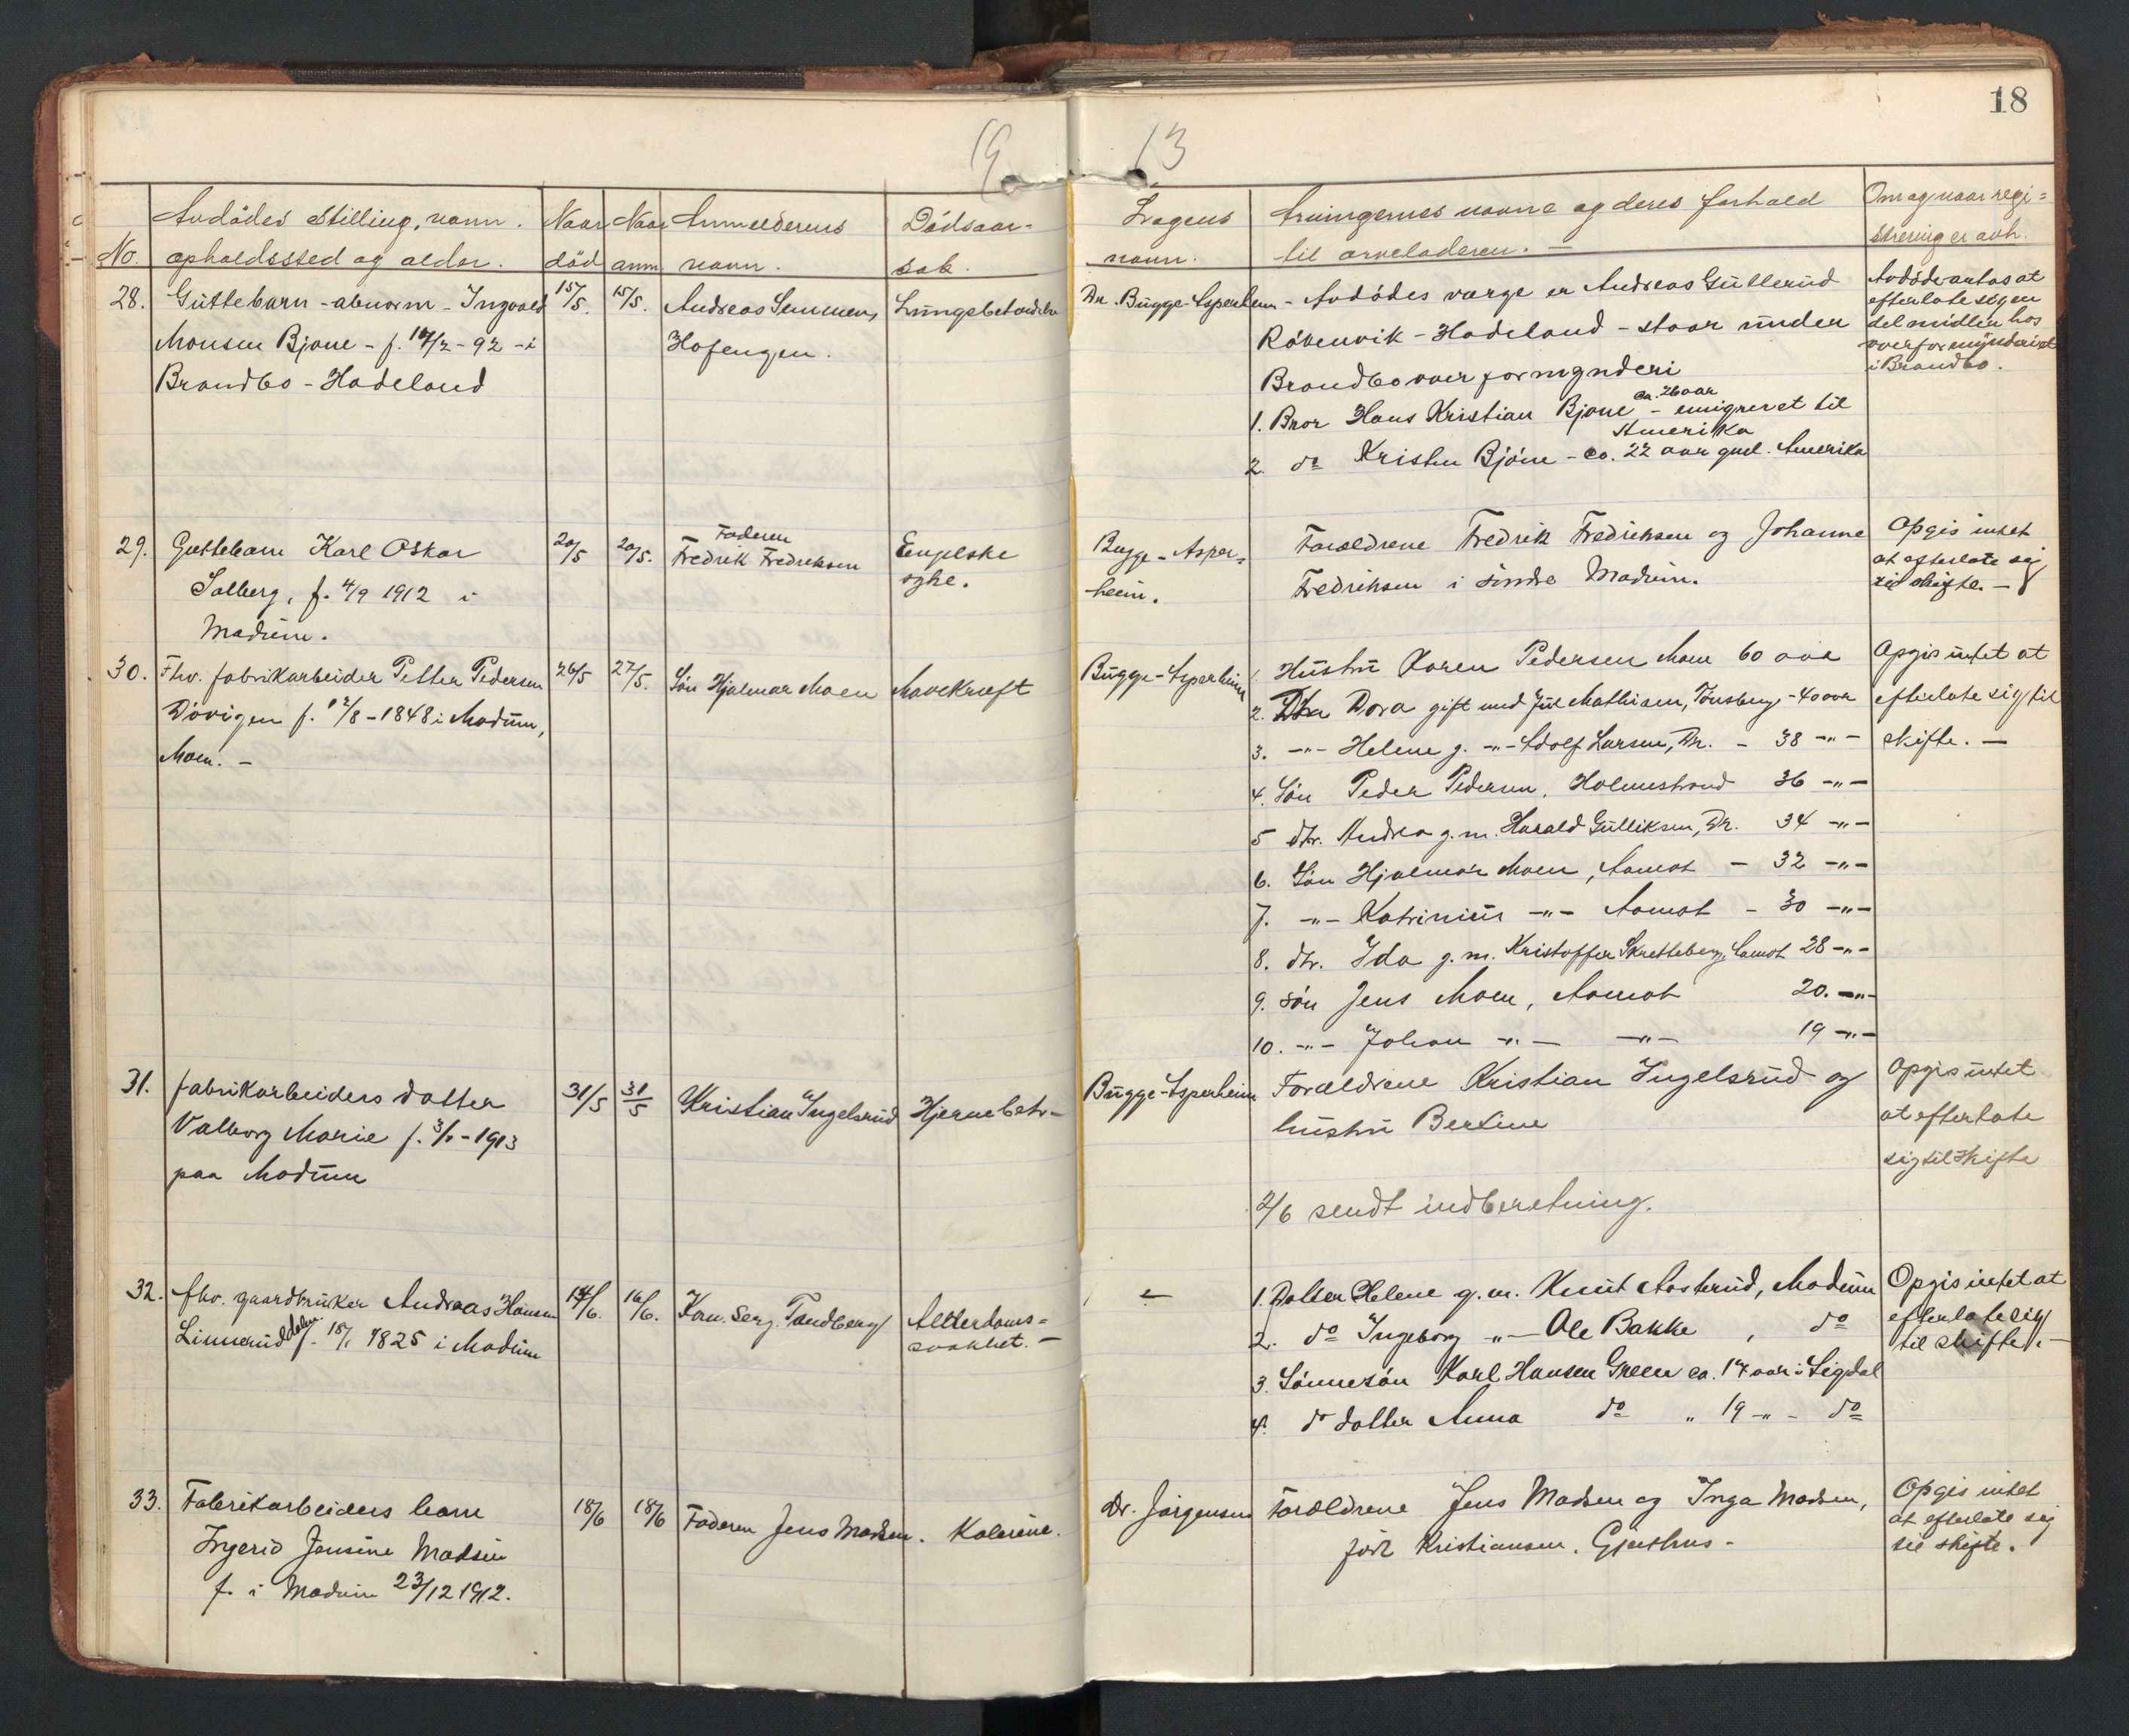 18
19 13
No.
Avdödes stilling, navn.
opholdssted og alder.
Naar
död
Naar
anm.
Anmelderens
navn.
Dödsaar-
sak.
Lægens
navn.
Arvingernes navne og deres forhold
til arveladeren. —
Om og naar regi=
strering er avh.
28. Guttebarn - abnorm - Ingvald
Monsen Bjone - f. /2 - 92 - i
Brandbo - Hadeland
15/5. 15/5. Andreas
Hofengen.
Lungebetændelse
Dr. Bugge-Asperheim - Avdödes værge er Andreas Gullerud
Rökenvik - Hadeland - staar under
Brandbo overformynderi
1. Bror Hans Kristian Bjone ca. 26 aar - emigreret til
Amerika
2. do Kristen Bjöne - ca. 22 aar gml. Amerika
Avdöde antas at
efterlate sig en
del midler hos
overformynderiet
i Brandbo.
29. Guttebarn Karl Oskar
Solberg, f. 4/9 1912 i
Modum.
20/5 20/5. Faderen
Fredrik Fredriksen
Engelske
syke.
Bugge-Asper=
heim.
Forældrene Fredrik Fredriksen og Johanne
Fredriksen i söndre Modum.
Opgis intet
at efterlate sig
til skifte. —
30. Fhv. fabrikarbeider Petter Pedersen
Dövigen f. 12/8 - 1848 i Modum,
Moen. —
26/5 27/5. Sön Hjalmar Moen Mavekræft
Bugge-Asperheim
1. Hustru Karen Pedersen Moen 60 aar
2. Dtr Dora gift med Jul Mathisen, Tönsberg - 40 aar
3. -"- Helene g. -"- Adolf Larsen, Dr. - 38 -"-
4. Sön Peder Pedersen, Holmestrand 36 -"-
5 dtr. Andrea g. m. Harald Gulliksen, Dr. 34 -"-
6. Sön Hjalmar Moen, Aamot - 32 -"-
7. -"- Katrinius -"- Aamot - 30 -"-
8. dtr. Ida g. m. Kristoffer Skretteberg, Aamot 28 -"-
9. sön Jens Moen, Aamot 20. -"-
10. -"- Johan -"- -"- 19 -"-
Opgis intet at
efterlate sig til
skifte. —
31. fabrikarbeiders datter
Valborg Marie f. 3/1 - 1913
paa Modum
31/5 31/5 Kristian Ingelsrud Hjernebet-
Bugge-Asperheim
Forældrene Kristian Ingelsrud og
hustru Bertine
Opgis intet
at efterlate
sig til skifte
2/6 sendt indberetning.
32. fhv. gaardbruker Andreas Hansen
Linneruddalen f. 18/1 1825 i Modum
14/6. 16/6. Kan. Serg. Tandberg Alderdoms=
svakhet. —
1. Datter Helene g. m. Knut Aasterud, Modum
2. do Ingeborg -"- Ole Bakke, do
3. Sönnesön Karl Hansen Green ca. 17 aar i Sigdal
4. do datter Anna do " 19 -"- do
Opgis intet at
efterlate sig
til skifte. —
33. Fabrikarbeiders barn
Ingerid Jensine Madsen
f. i Modum 23/12 1912.
18/6 18/6 Faderen Jens Madsen. Kolerine.
Dr. Jörgensen
Forældrene Jens Madsen og Inga Madsen,
födt Kristiansen. Gjethus -
Opgis intet
at efterlate sig
til skifte.